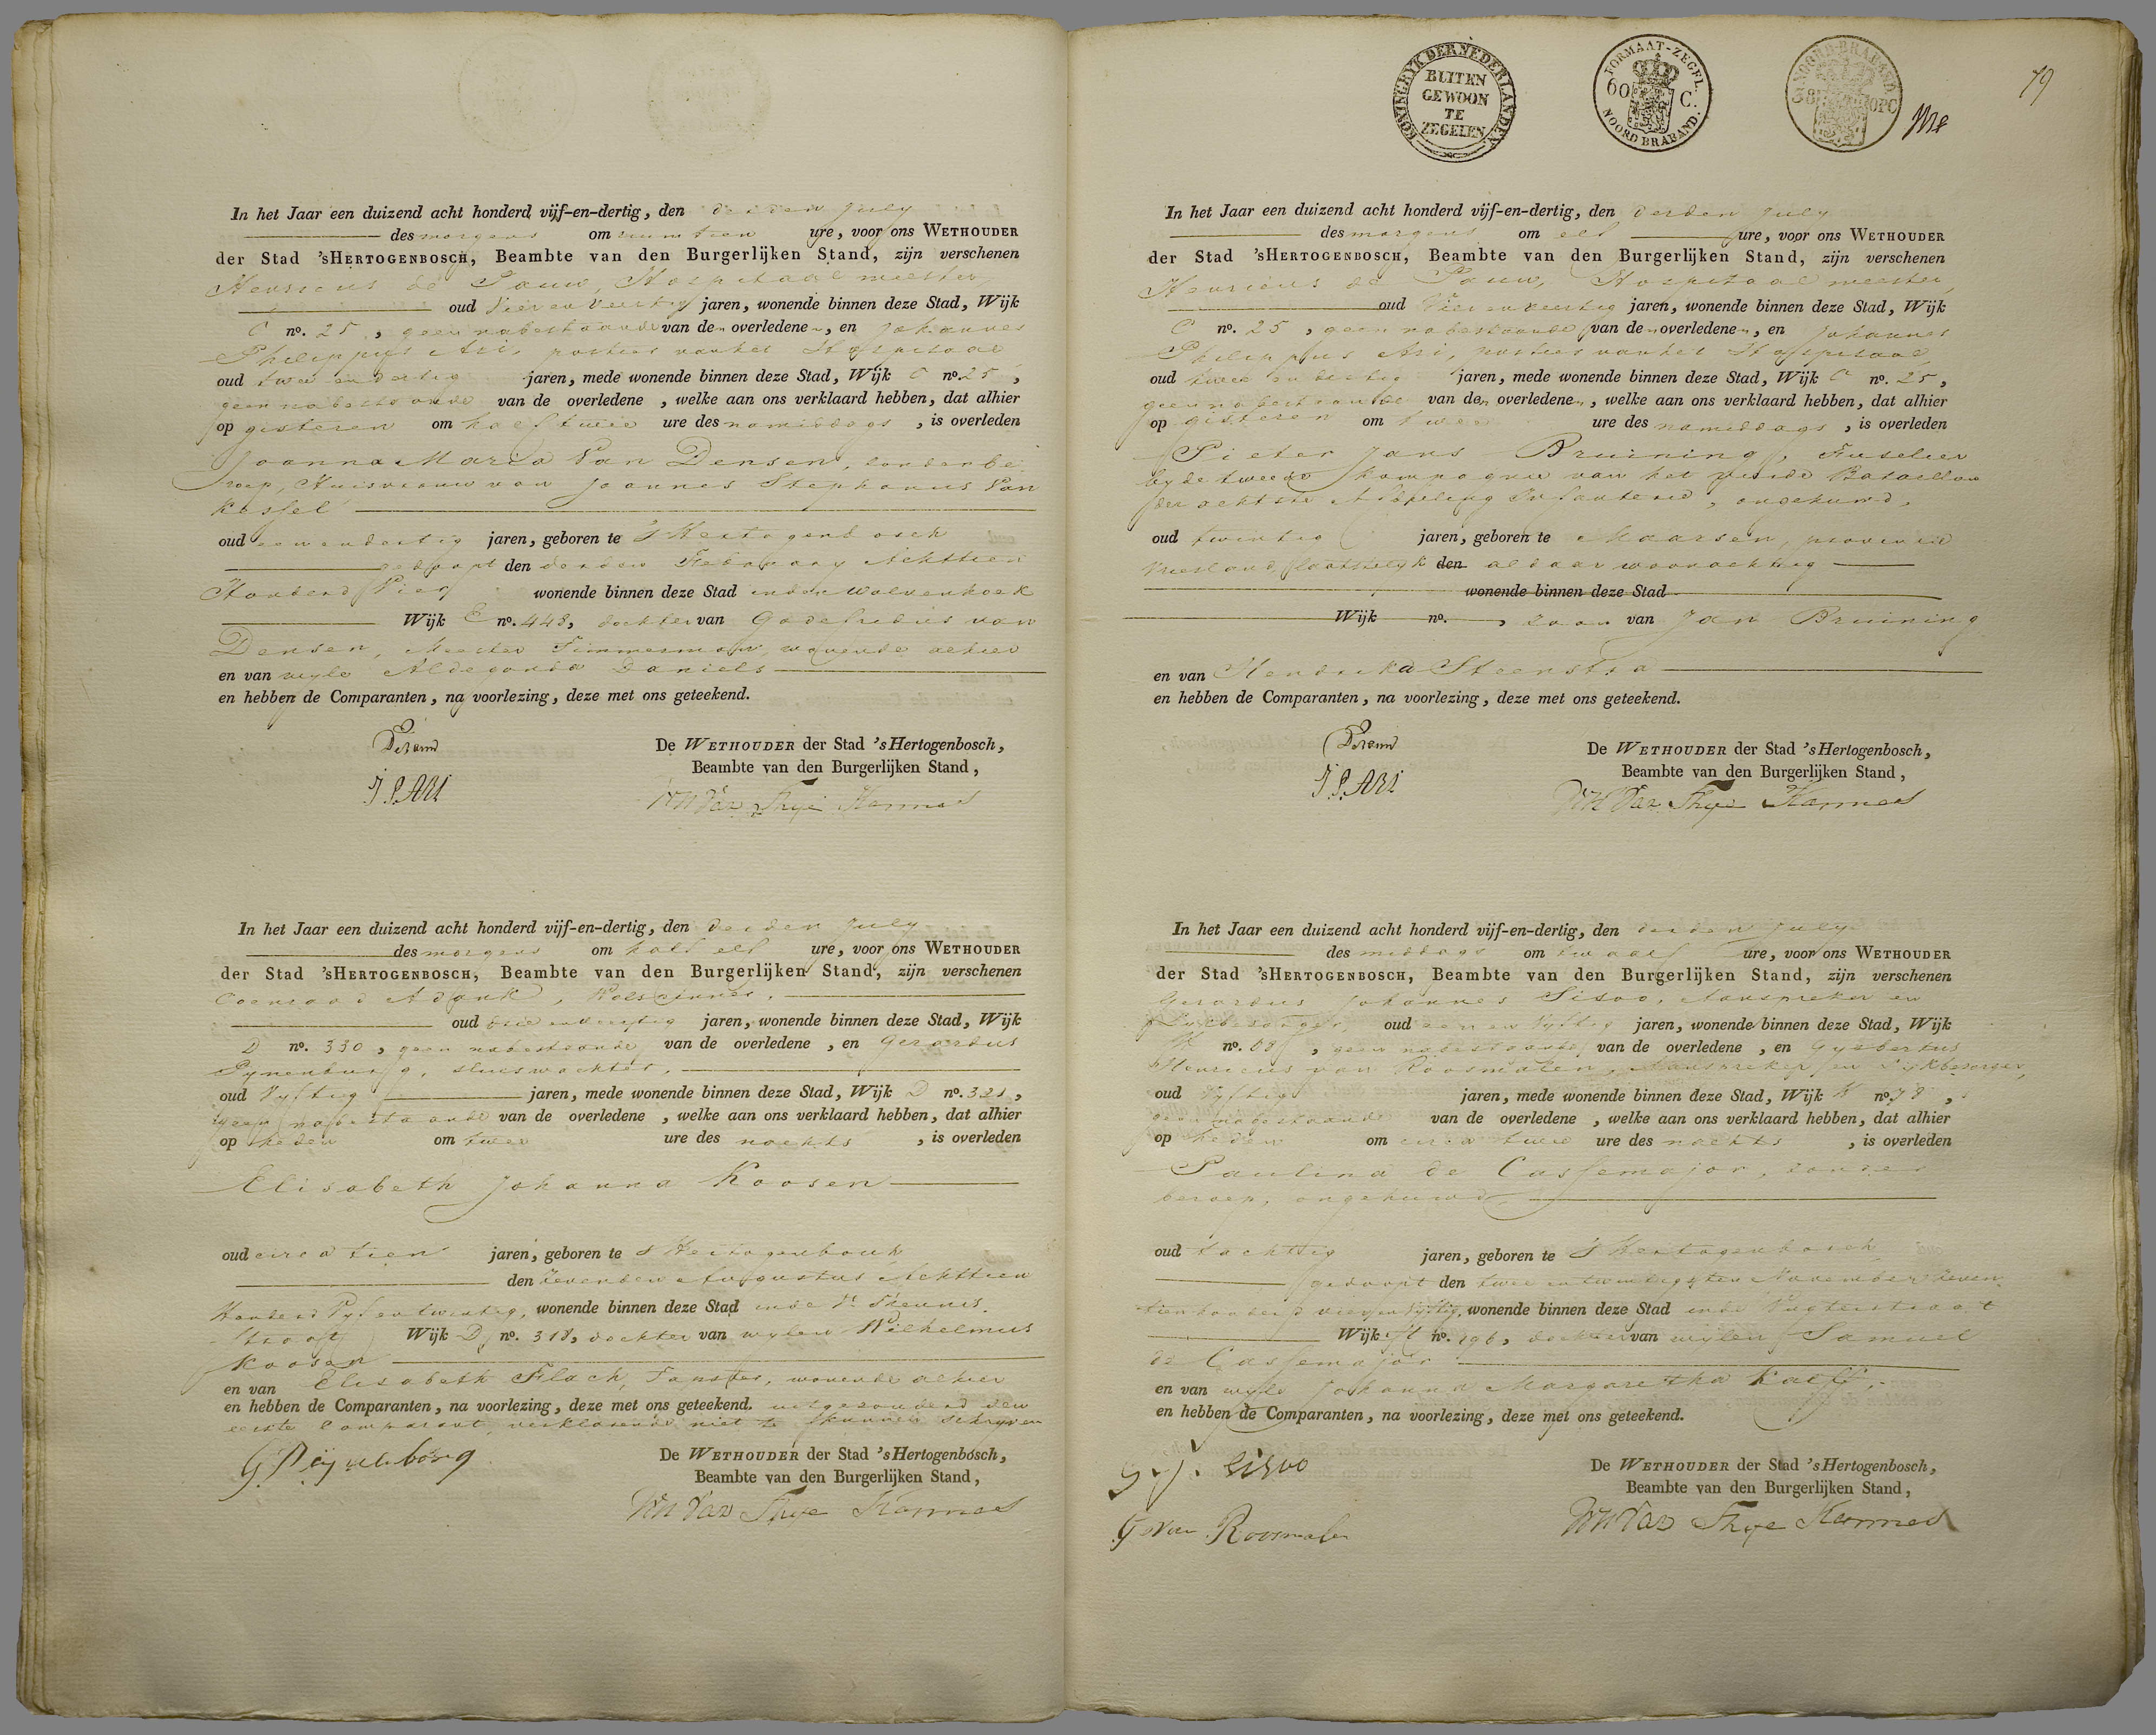 In het Jaar een duizend acht honderd vijf-en-dertig, den derden July
des morgens om ure, voor ons WETHOUDER
der Stad 'sHERTOGENBOSCH, Beambte van den Burgerlijken Stand, zijn verschenen
Henricus de Pauw, Hospitaal meester
oud Vier en Veertig jaren, wonende binnen deze Stad, Wijk
C no. 25, geen nabestaande van den overledene, en Johannes
Philippus Ari, portier van het Hospitaal
oud twee en dertig jaren, mede wonende binnen deze Stad, Wijk C no. 25,
geen nabestaande van de overledene, welke aan ons verklaard hebben, dat alhier
op gisteren om half twee ure des namiddags, is overleden
Joanna Maria Van Densen, zonder be-
roep, Huisvrouw van Joannes Stephanus Van
Kessel
oud een en dertig jaren, geboren te 's Hertogenbosch
gedoopt den derden February Achttien
Honderd Vier wonende binnen deze Stad in den Wolvenhoek
Wijk E no. 448, dochter van Godefridus van
Densen, Meester Timmerman, wonende alhier
en van wyle Aldegonda Daniels
en hebben de Comparanten, na voorlezing, deze met ons geteekend.
De WETHOUDER der Stad 'sHertogenbosch,
Beambte van den Burgerlijken Stand,
J. P. ARI
In het Jaar een duizend acht honderd vijf-en-dertig, den derden July
des morgens om half elf ure, voor ons WETHOUDER
der Stad 'sHERTOGENBOSCH, Beambte van den Burgerlijken Stand, zijn verschenen
Coenraad
oud drie en jaren, wonende binnen deze Stad, Wijk
D no. 330, geen nabestaande van de overledene, en Gerardus
Pynenburg, sluiswachter,
oud Vyftig jaren, mede wonende binnen deze Stad, Wijk D no. 321,
geen nabestaande van de overledene, welke aan ons verklaard hebben, dat alhier
op heden om twee ure des nachts, is overleden
Elisabeth Johanna Koosen
oud circa tien jaren, geboren te 's Hertogenbosch
den Zevenden Augustus Achttien
Honderd Vyf en twintig, wonende binnen deze Stad in de St. Theunis
straat Wijk D, no. 318, dochter van wylen Wilhelmus
Koosen
en van Elisabeth Flach, wonende alhier
en hebben de Comparanten, na voorlezing, deze met ons geteekend. uitgezonderd den
eerste Comparant, verklarende niet te kunnen schryven
De WETHOUDER der Stad 'sHertogenbosch,
Beambte van den Burgerlijken Stand,
KONINGRYK DER NEDERLANDEN
BUITEN
GEWOON
TE
ZEGELEN
FORMAAT-ZEGEL
60 C.
NOORD BRABAND.
NOORD-BRABAND
38 OPC
79
In het Jaar een duizend acht honderd vijf-en-dertig, den derden July
des morgens om elf ure, voor ons WETHOUDER
der Stad 'sHERTOGENBOSCH, Beambte van den Burgerlijken Stand, zijn verschenen
Henricus de Pauw, Hospitaal meester,
oud Vier en veertig jaren, wonende binnen deze Stad, Wijk
C no. 25, geen nabestaande van den overledenen, en Johannes
Philippus Ari, portier van het Hospitaal,
oud twee en dertig jaren, mede wonende binnen deze Stad, Wijk C no. 25,
geen nabestaande van den overledenen, welke aan ons verklaard hebben, dat alhier
op gisteren om twee ure des namiddags, is overleden
Pieter Jans Bruining, Fuselier
by de tweede kompagnie van het Bataillon
der achtste Afdeeling Infanterie, ongehuwd,
oud twintig jaren, geboren te Maarsen, provincie
Vriesland, laatstelyk den aldaar woonachtig
wonende binnen deze Stad
Wijk no. , zoon van Jan Bruining
en van Hendrika Steenstra
en hebben de Comparanten, na voorlezing, deze met ons geteekend.
De WETHOUDER der Stad 'sHertogenbosch,
Beambte van den Burgerlijken Stand,
J. P. ARI
In het Jaar een duizend acht honderd vijf-en-dertig, den derden July
des middags om twaalf ure, voor ons WETHOUDER
der Stad 'sHERTOGENBOSCH, Beambte van den Burgerlijken Stand, zijn verschenen
Gerardus Johannes Sisoo, Aanspreker en
Lykbezorger, oud een en Vyftig jaren, wonende binnen deze Stad, Wijk
no. , geen nabestaande van de overledene, en Gysbertus
Henricus van Roosmalen, Aanspreker en Lykbezorger,
oud Vyftig jaren, mede wonende binnen deze Stad, Wijk no. 78,
geen nabestaande van de overledene, welke aan ons verklaard hebben, dat alhier
op heden om circa twee ure des nachts, is overleden
Paulina de Cassemajor, zonder
beroep, ongehuwd
oud tachtig jaren, geboren te 's Hertogenbosch
gedoopt den twee en twintigsten November Zeven-
tienhonderd vier en Vyftig, wonende binnen deze Stad in de Vugterstraat
Wijk no. 196, dochter van wylen Samuel
de Cassemajor
en van wyle Johanna Margaretha Kalff,
en hebben de Comparanten, na voorlezing, deze met ons geteekend.
De WETHOUDER der Stad 'sHertogenbosch,
Beambte van den Burgerlijken Stand,
G. J. Sisoo
G. van Roosmalen